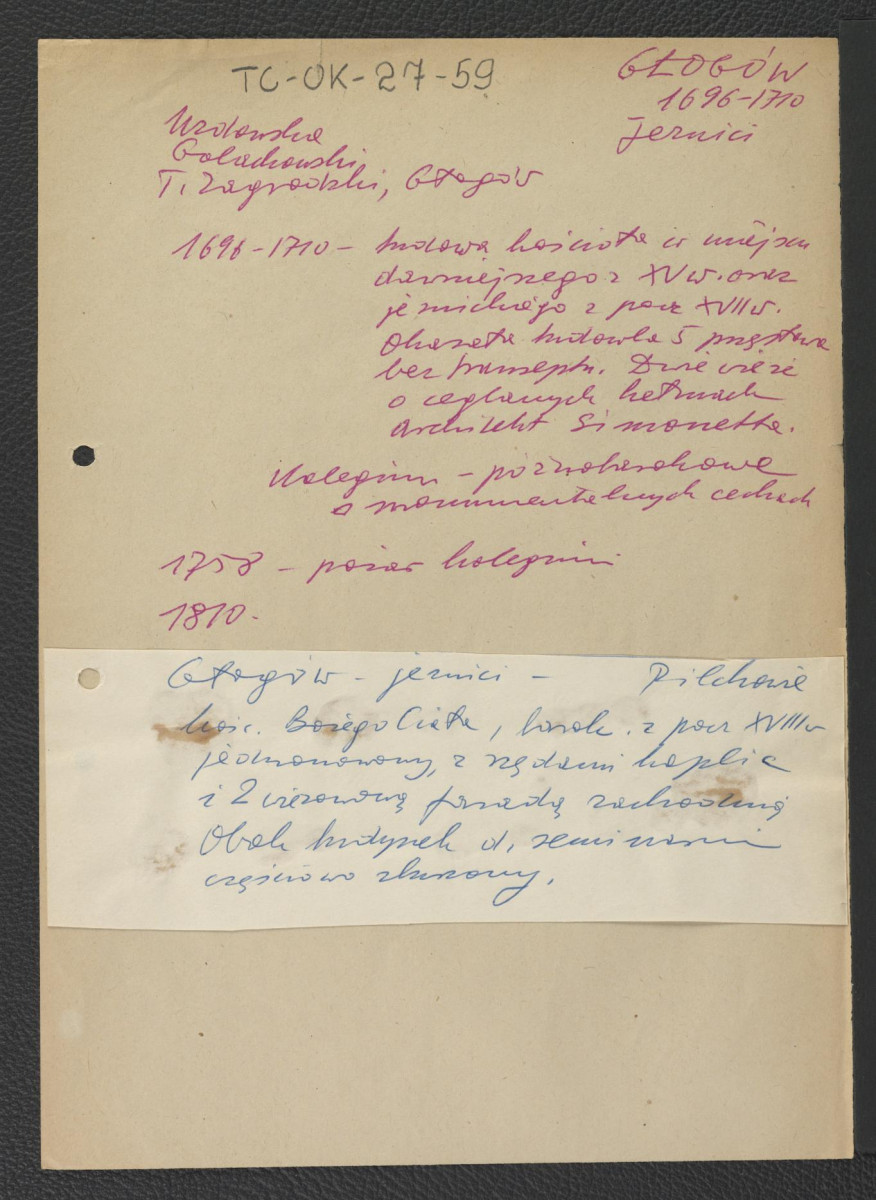 TC-OK-27-59
GŁOGÓW
1696-1710
jezuici
Golachowski
T. Zagrodzki, Głogów
1696-1710 - budowa kościoła w miejscu
dawniejszego z XV w. oraz
jezuickiego z pocz XVII w.
Okazała budowla 5 przęsłowa
bez transeptu. Dwie wieże
o ceglanych hełmach
architekt Simonetta.
Kolegium - późnobarokowe
o monumentalnych cechach
1758 - pożar kolegium
1810.
Głogów - jezuici - Pilchowie
kośc. Bożego Ciała, barok. z pocz XVIII w
jednonawowy, z rzędami kaplic
i 2 wieżową fasadą zachodnią
Obok budynek d. seminarium
częściowo zburzony.